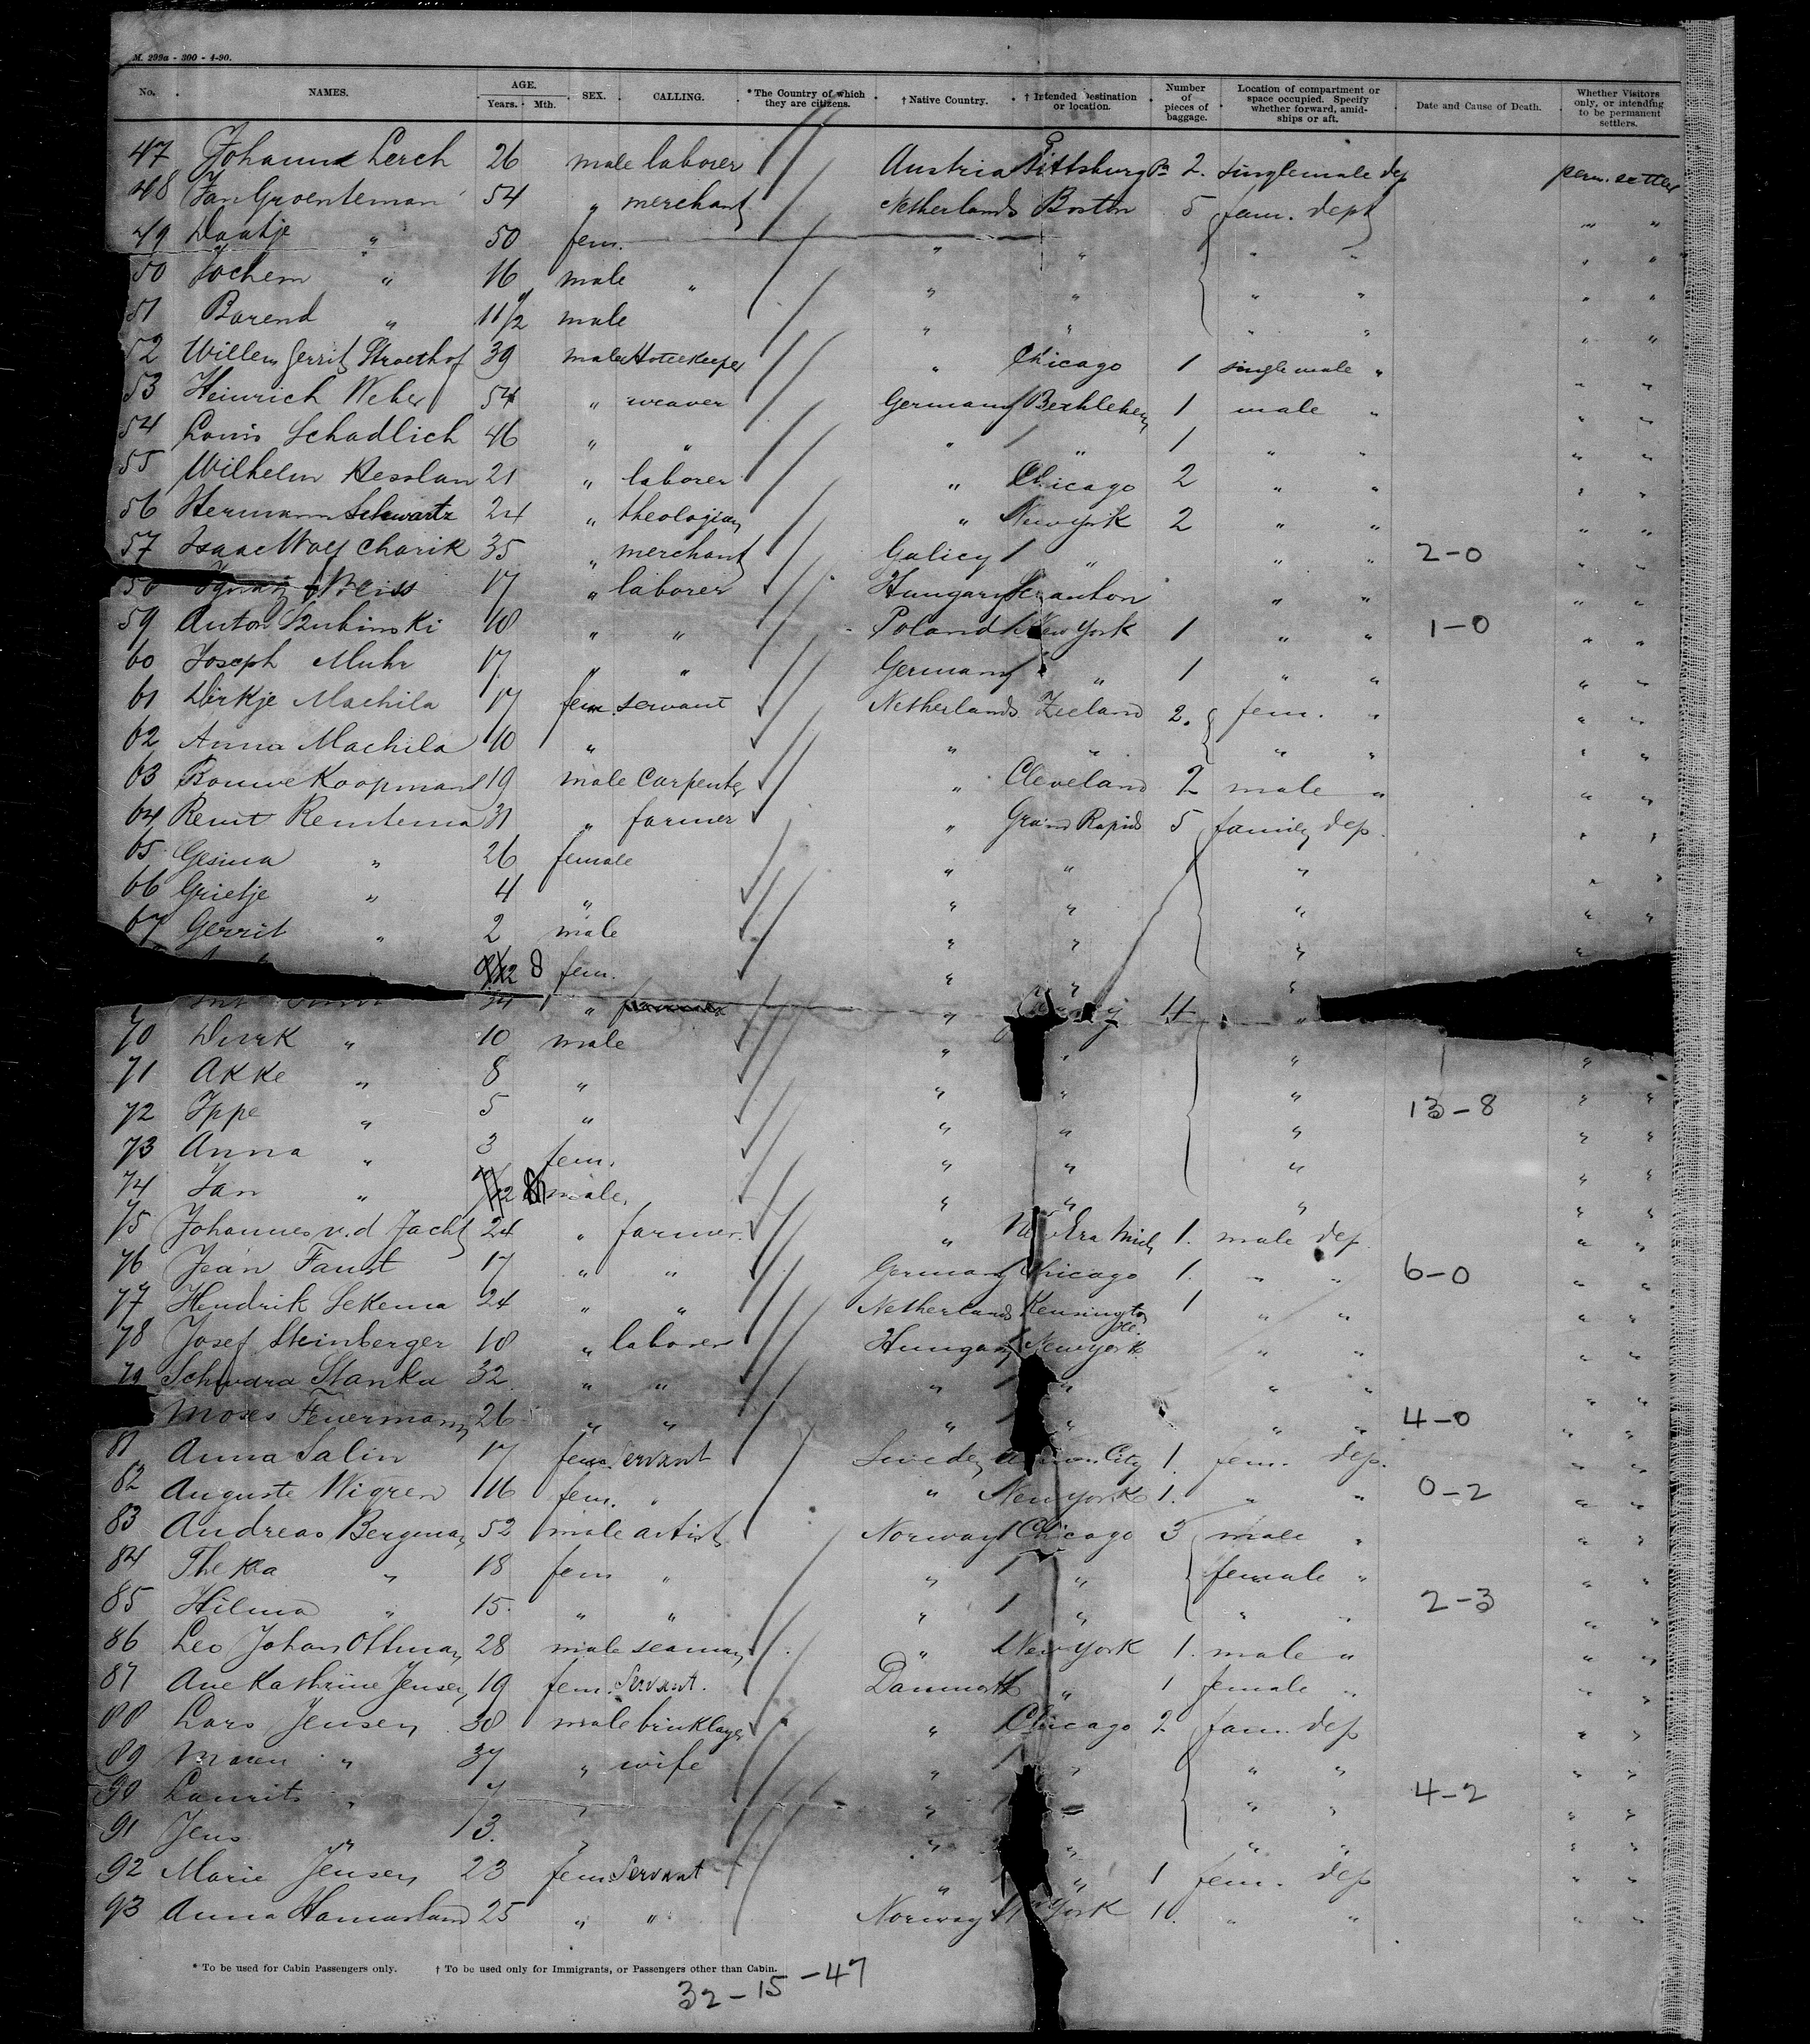 M. 299a - 300 - 4-90.
No. NAMES. AGE. Years. Mth. SEX. CALLING. *The Country of which they are citizens. † Native Country. † Intended Destination or location. Number of pieces of baggage. Location of compartment or space occupied. Specify whether forward, amidships or aft. Date and Cause of Death. Whether Visitors only, or intending to be permanent settlers.
47 Johann Lerch 26 male laborer Austria Pittsburg Pa 2. single male dep perm. settler
48 Jan Groenteman 54 " merchant Netherlands Boston 5 fam. dept " "
49 Daatje " 50 fem. " " " " " "
50 Jochem " 16 male " " " " " " "
51 Barend " 11 1/2 male " " " " " "
52 Willem Gerrit Stroethof 39 male Hotelkeeper " Chicago 1 single male " " "
53 Heinrich Weber 54 " weaver Germany Bethlehem 1 male " " "
54 Louis Schadlich 46 " " " " 1 " " " "
55 Wilhelm Hesslan 21 " laborer " Chicago 2 " " " "
56 Hermann Schwartz 24 " theologian " New york 2 " " " "
57 Isaac Wolf Charik 35 " merchant Galicy " " " 2-0 " "
58 Ignatz Weiss 17 " laborer Hungary Scranton " " " "
59 Anton Szubinski 18 " " Poland New York 1 " " 1-0 " "
60 Joseph Muhr 17 " " Germany " 1 " " " "
61 Dirkje Machila 17 fem. servant Netherlands Zeeland 2. fem. " " "
62 Anna Machila 10 " " " " " " "
63 Bouwe Koopmans 19 male Carpenter " Cleveland 2 male " " "
64 Remt Remtema 31 " farmer " Grand Rapids 5 family dep. " "
65 Gesina " 26 female " " " " "
66 Grietje " 4 " " " " " "
67 Gerrit " 2 male " " " "
8 fem. " " "
34 " " 4 "
70 Dirk " 10 male " " " " "
71 Akke " 8 " " " " " "
72 Ippe " 5 " " " " 13-8 " "
73 Anna " 3 fem. " " " " "
74 Jan " male " " " " "
75 Johannes v.d Jacht 24 " farmer. " New Era Mich 1. male dep. " "
76 Jean Faust 17 " " Germany Chicago 1. " " 6-0 " "
77 Hendrik Sekema 24 " " Netherlands Kensington Ill. 1 " " " "
78 Josef Steinberger 18 " laborer Hungary New york " " " "
79 Schwara Stanka 32 " " " " " " " "
Moses Feuermann 26 " " " " " " 4-0 " "
81 Anna Salin 17 fem. servant Sweden City 1. fem. dep. " "
82 Auguste Wigren 16 fem. " " New York 1. " " 0-2 " "
83 Andreas Bergman 52 male artist Norway Chicago 3 male " " "
84 Thekla " 18 fem " " " female " " "
85 Hilma " 15. " " " " " " 2-3 " "
86 Leo Johan Ottman 28 male seaman " New York 1. male " " "
87 Ane Kathrine Jensen 19 fem. Servant. Danmark " 1 female " " "
88 Lars Jensen 38 male bricklayer " Chicago 2 fam. dep " "
89 Maren " 37 " wife " " " " " "
90 Laurits " 7 " " " " " 4-2 " "
91 Jens " 3. " " " " " " "
92 Marie Jensen 23 fem. Servant " " 1 fem. dep " "
93 Anna Hamarland 25 " " Norway N York 1. " " " "
* To be used for Cabin Passengers only. † To be used only for Immigrants, or Passengers other than Cabin.
32-15-47